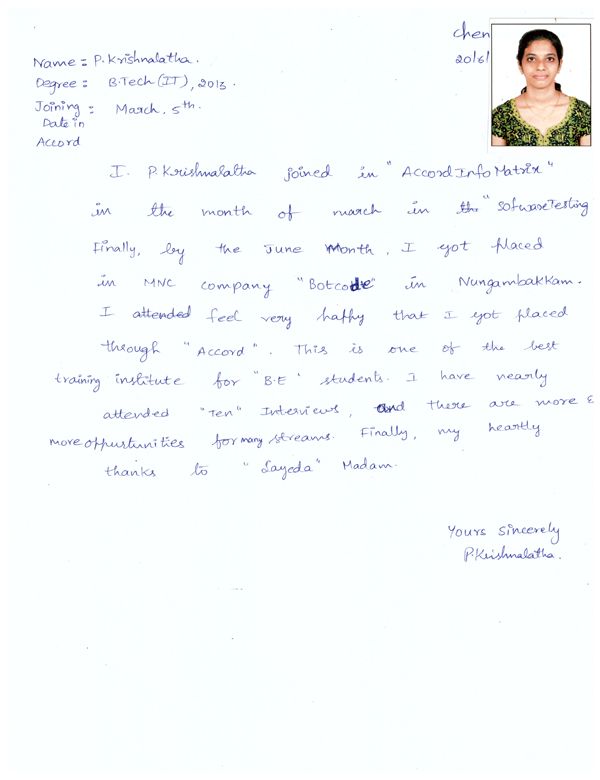 Chen
20/6/
Name : P. Krishnalatha.
Degree : B.Tech (IT), 2013.
Joining : March, 5th.
Date in
Accord
I. P. Krishnalatha joined in "Accord Info Matrix"
in the month of march in the "Sofware Testing
Finally, by the June Month, I got placed
in MNC company "Botcode" in Nungambakkam.
I attended feel very happy that I got placed
through "Accord". This is one of the best
training institute for "B.E" students. I have nearly
attended "Ten" Interviews, and there are more &
more oppurtunities for many streams. Finally, my heartly
thanks to "Sayeda" Madam.
Yours Sincerely
P.Krishnalatha.